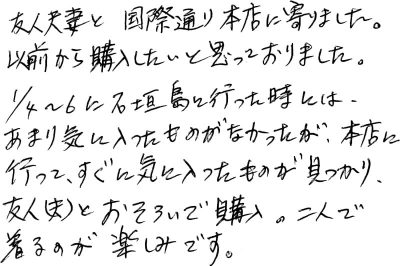 友人夫妻と国際通り本店に寄りました。
以前から購入したいと思っておりました。
1/4〜6に石垣島に行った時には、
あまり気に入ったものがなかったが、本店に
行って、すぐに気に入ったものが見つかり、
友人(夫)とおそろいで購入。二人で
着るのが楽しみです。